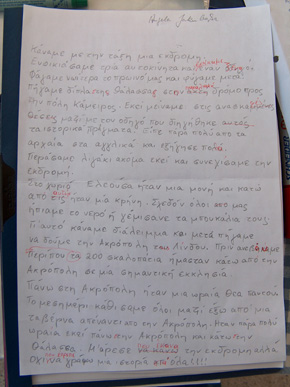 Κάναμε με την τάξη μια εκδρομή.
Ενοικιάσαμε τρία αυτοκίνητα και
φάγαμε το πρωινό μας και φύγαμε μετά.
Πήγαμε δίπλα της θάλασσας στην δρόμο προς
την πόλη Κάμειρος. Εκεί μείναμε στις
θέσεις μαζί με τον οδηγό που διηγήθηκε
τα ιστορικά πράγματα. Είπε πάρα πολύ από τα
αρχαία στα αγγλικά και εξήγησε πολύ.
Περάσαμε λιγάκι ακόμα εκεί και συνεχίσαμε την
εκδρομή.
Στο χωριό Ελεούσα ήταν μια μονή και κάτω
από ήταν μία κρήνη. Σχεδόν όλοι από μας
ήπιαμε το νερό ή γέμισανε τα μπουκάλια τους.
Γι'αυτό κάναμε διάλειμμα και μετά πήγαμε
να δούμε την Ακρόπολη του Λίνδου. Πριν
περίπου τα 200 σκαλοπάτια ήμασταν κάτω από την
Ακρόπολη σε μία σημαντική εκκλησία.
Πάνω στη Ακρόπολη ήταν μια ωραία θέα παντού.
Το μεσημέρι καθίσαμε όλοι μαζί έξω από μια
ταβέρνα απέναντι από την Ακρόπολη. Ήταν πάρα πολύ
ωραία εκεί πάνω την Ακρόπολη και κάτω την
θάλασσα. Μ'άρεσε να κάνω την εκδρομή αλλά
ΟΧΙ να γράφω μια ιστορία όλα!!!